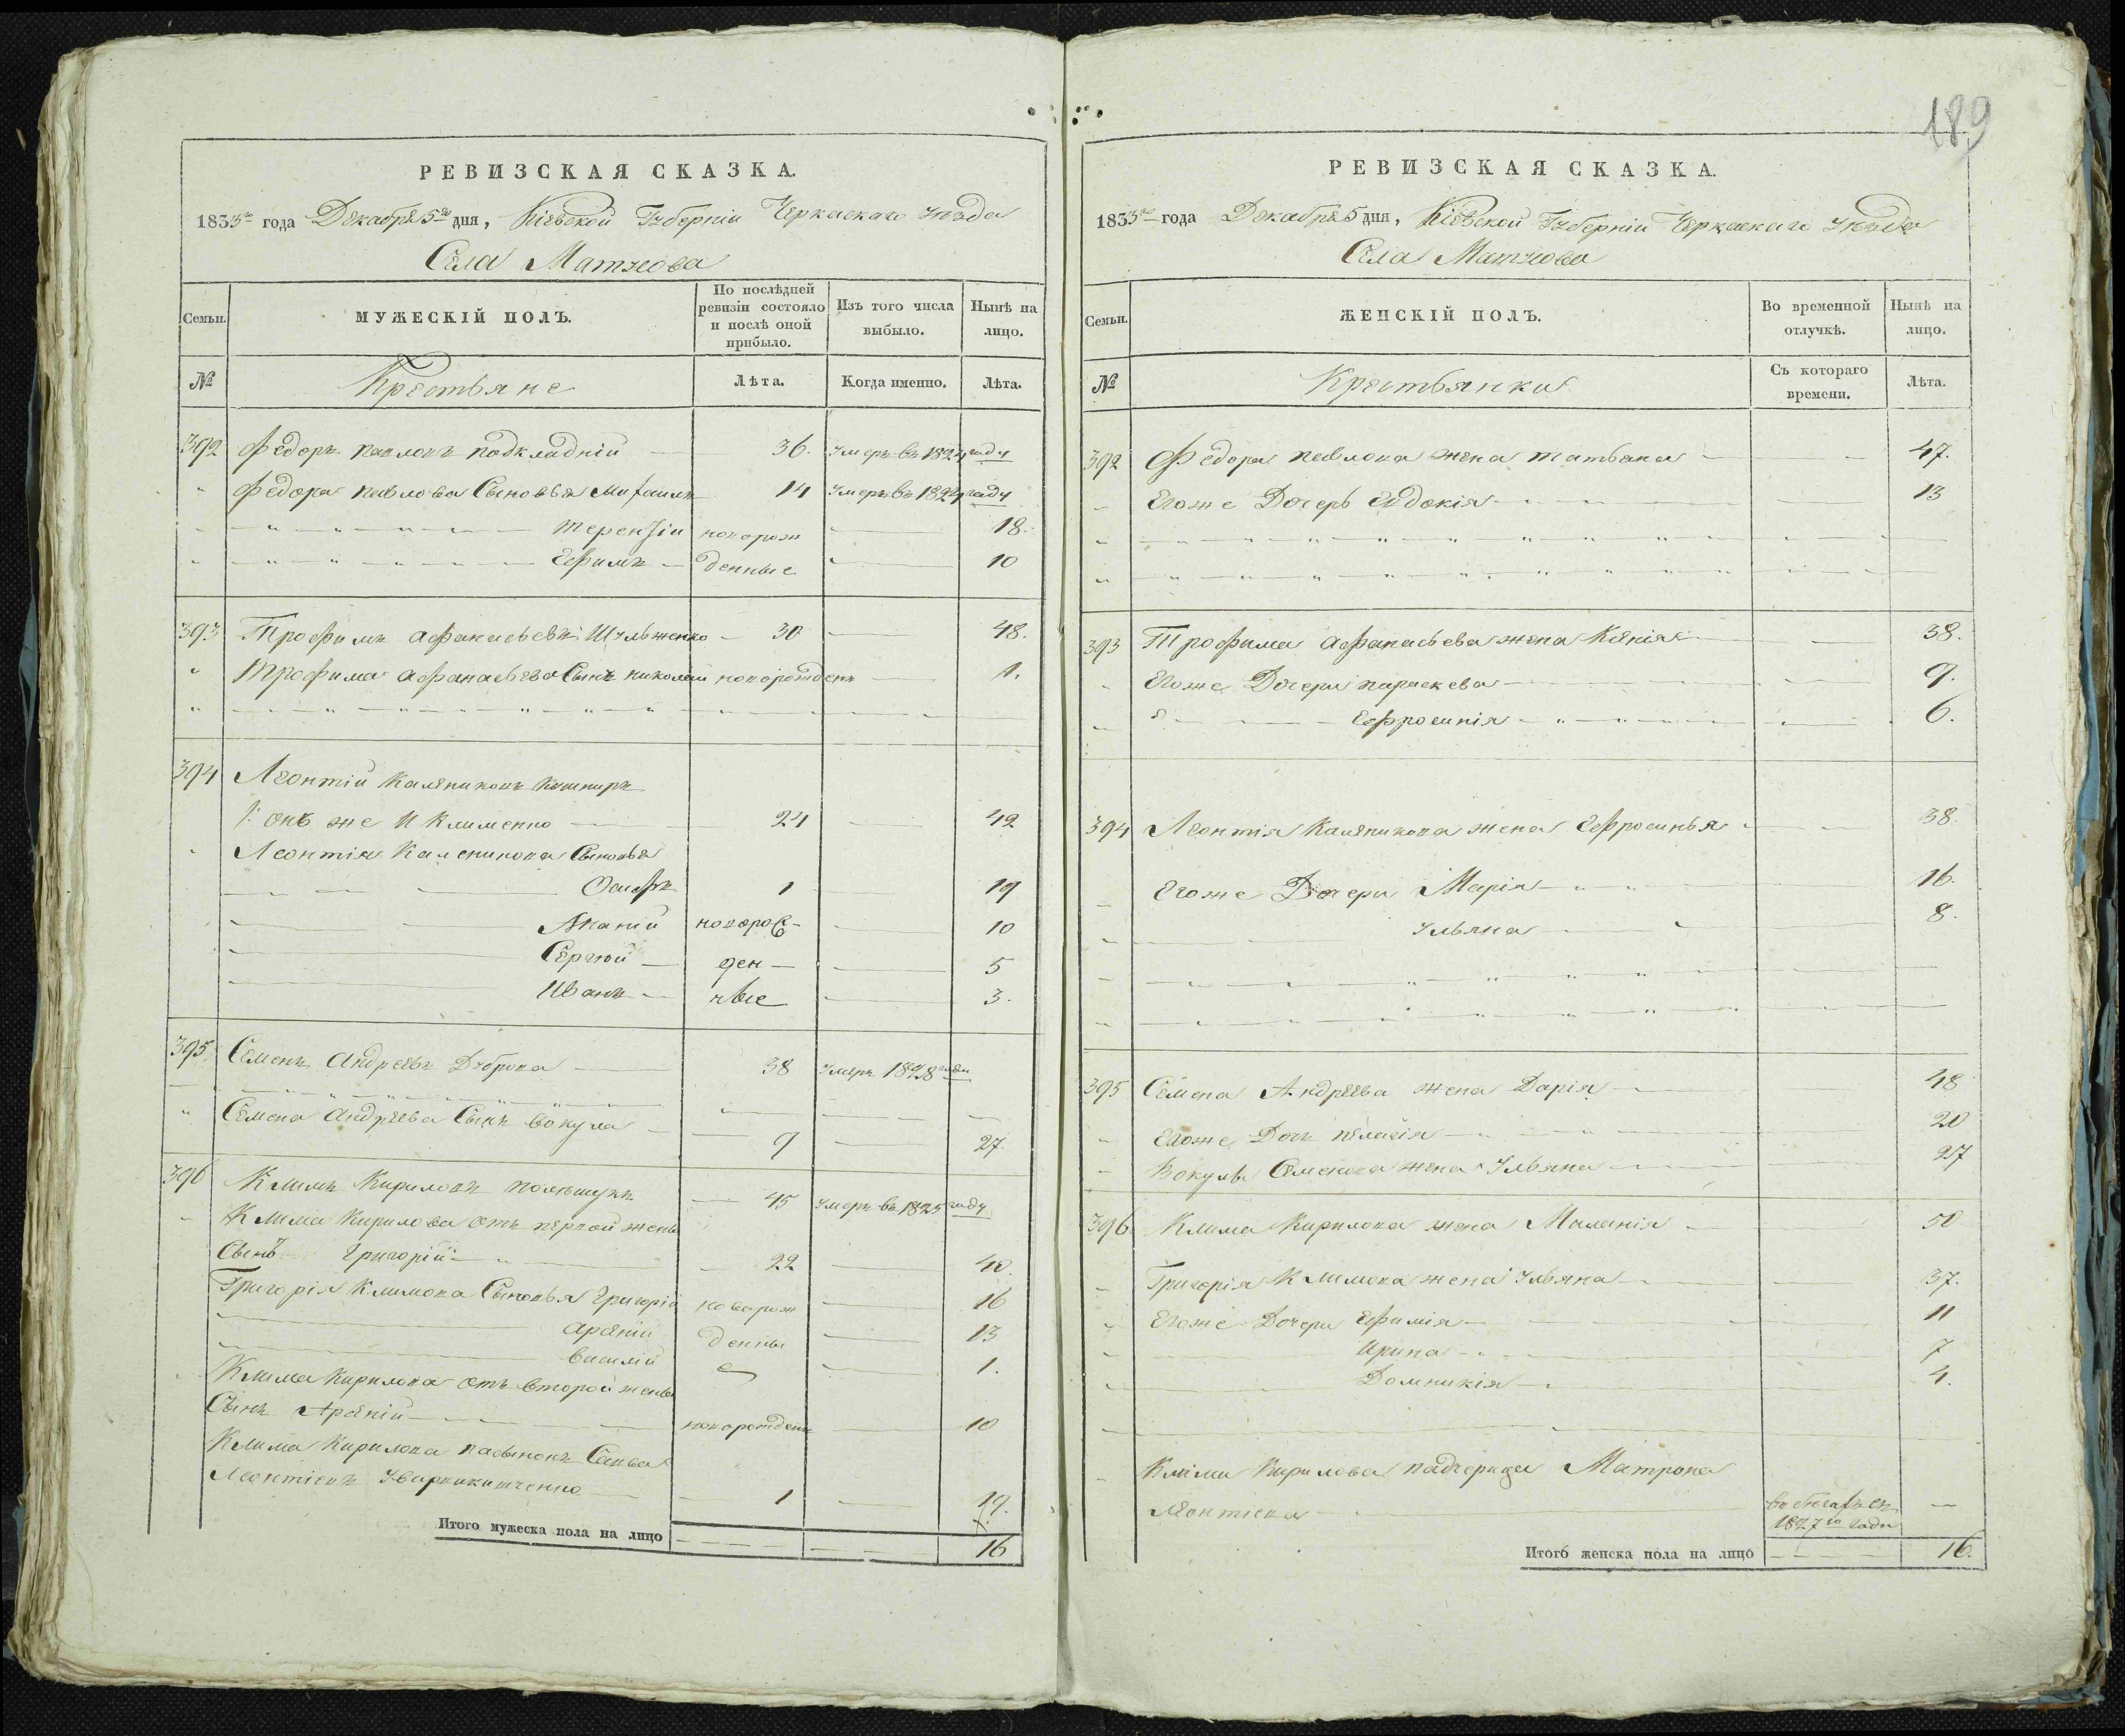 189
РЕВИЗСКАЯ СКАЗКА.
1833го года Декабря 5го дня, Кіевской Губерніи Черкаскаго уѣзда
Села Матусова
Семьи.
МУЖЕСКІЙ ПОЛЪ.
По послѣдней ревизіи состояло и послѣ оной прибыло.
Изъ того числа выбыло.
Нынѣ на лицо.
№
Крестьяне
Лѣта.
Когда именно.
Лѣта.
392 Федоръ Павловъ Подкладній 36. умеръ въ 1824 году
Федора Павлова Сыновья Михаилъ 14 умеръ въ 1824 году
Терентіи новорож 18.
Ефимъ денные 10
393 Трофимъ Афанасьевъ Шульженко 30 48.
Трофима Афанасьева Сынъ Николай новорожденъ 1.
394 Леонтій Калениковъ Кушниръ
онъ же и Клименко 24 42
Леонтія Каленикова Сыновья
Осифъ 1 19
Ананій новорож 10
Сергій ден 5
Иванъ ные 3.
395 Семенъ Андреевъ Дуброва 38 умеръ 1828 году
Семена Андреева Сынъ Вокула 9 27.
396 Климъ Кириловъ Полѣшукъ 45 умеръ въ 1825 году
Клима Кирилова отъ первой жены
Сынъ Григорій 22 40.
Григорія Климова Сыновья Григорій новорож 16
Арсеній денны 13
Василій 1.
Клима Кирилова отъ второй жены
Сынъ Арсеній новорожденъ 10
Клима Кирилова пасынокъ Савва
Леонтіевъ 1 19.
Итого мужеска пола на лицо 16
РЕВИЗСКАЯ СКАЗКА.
1833го года Декабря 5 дня, Кіевской Губерніи Черкаскаго уѣзда
Села Матусова
Семьи.
ЖЕНСКІЙ ПОЛЪ.
Во временной отлучкѣ.
Нынѣ на лицо.
№
Крестьянки
Съ котораго времени.
Лѣта.
392 Федора Павлова жена Татьяна 47.
Егоже Дочерь Евдокія 13
393 Трофима Афанасьева жена Ксенія 38.
Егоже Дочери Параскева 9.
Ефросинія 6.
394 Леонтія Каленикова жена Ефросинья 38.
Егоже Дочери Марія 16.
Ульяна 8.
395 Семена Андреева жена Дарія 48
Егоже Дочь Пелагія 20
Вокулы Семенова жена Ульяна 27
396 Клима Кирилова жена Маланія 50
Григорія Климова жена Ульяна 37.
Егоже Дочери Ефимія 11
Ирина 7
Домникія 4.
Клима Кирилова падчерица Матрона
Леонтіева въ бѣгахъ съ
1827го года
Итого женска пола на лицо 16.